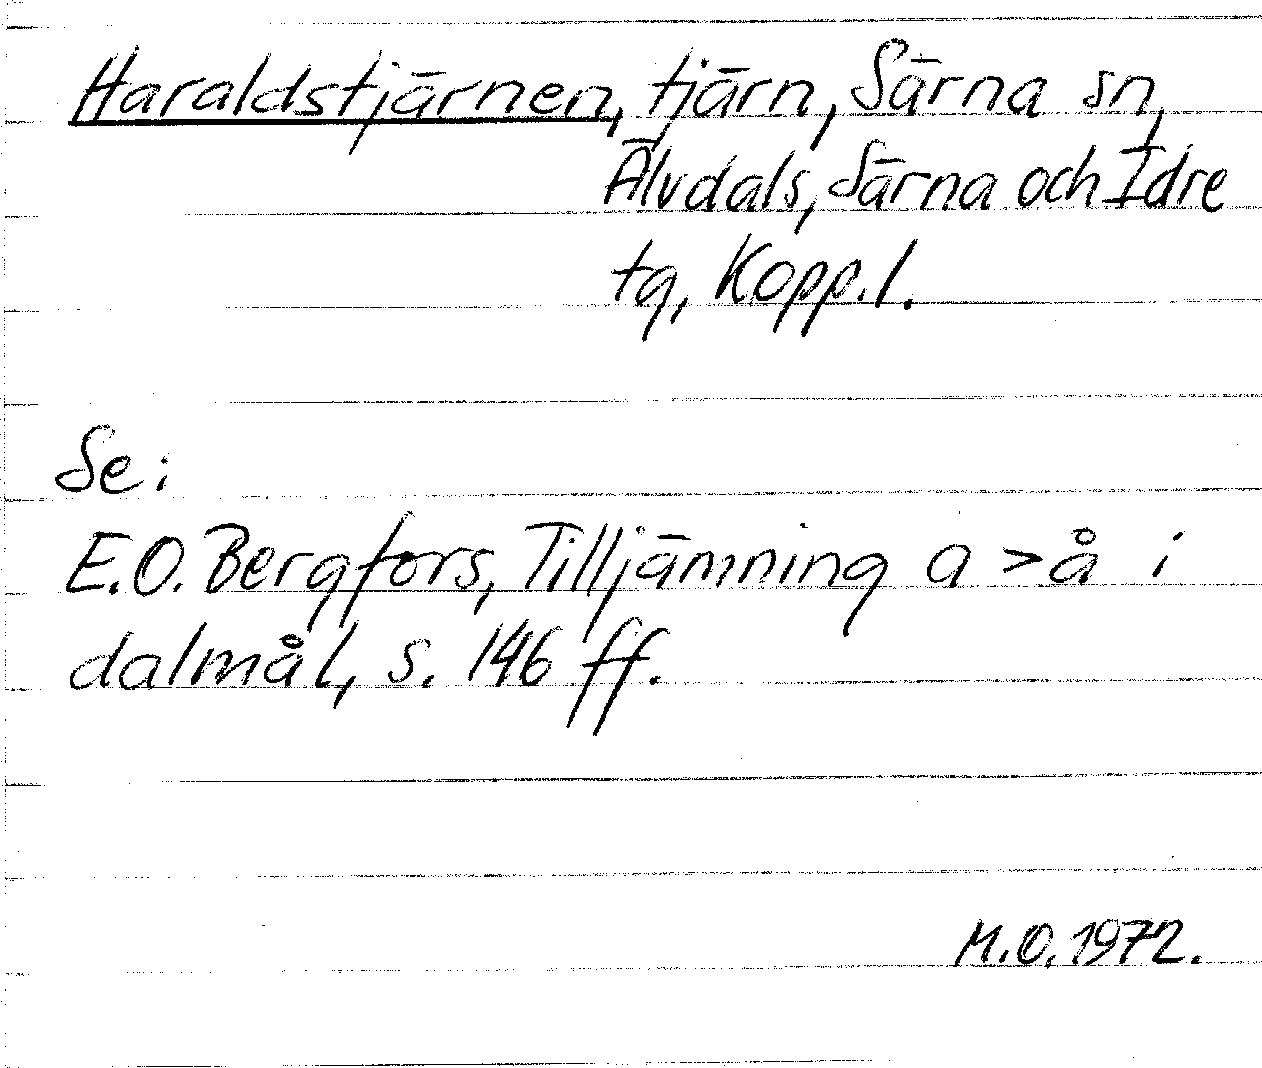 Haraldstjärnen, tjärn, Särna sn,
Älvdals, Särna och Idre
tg, Kopp.l.
Se:
E.O. Bergfors, Tilljämning a > å i
dalmål, s. 146 ff.
M.O. 1972.